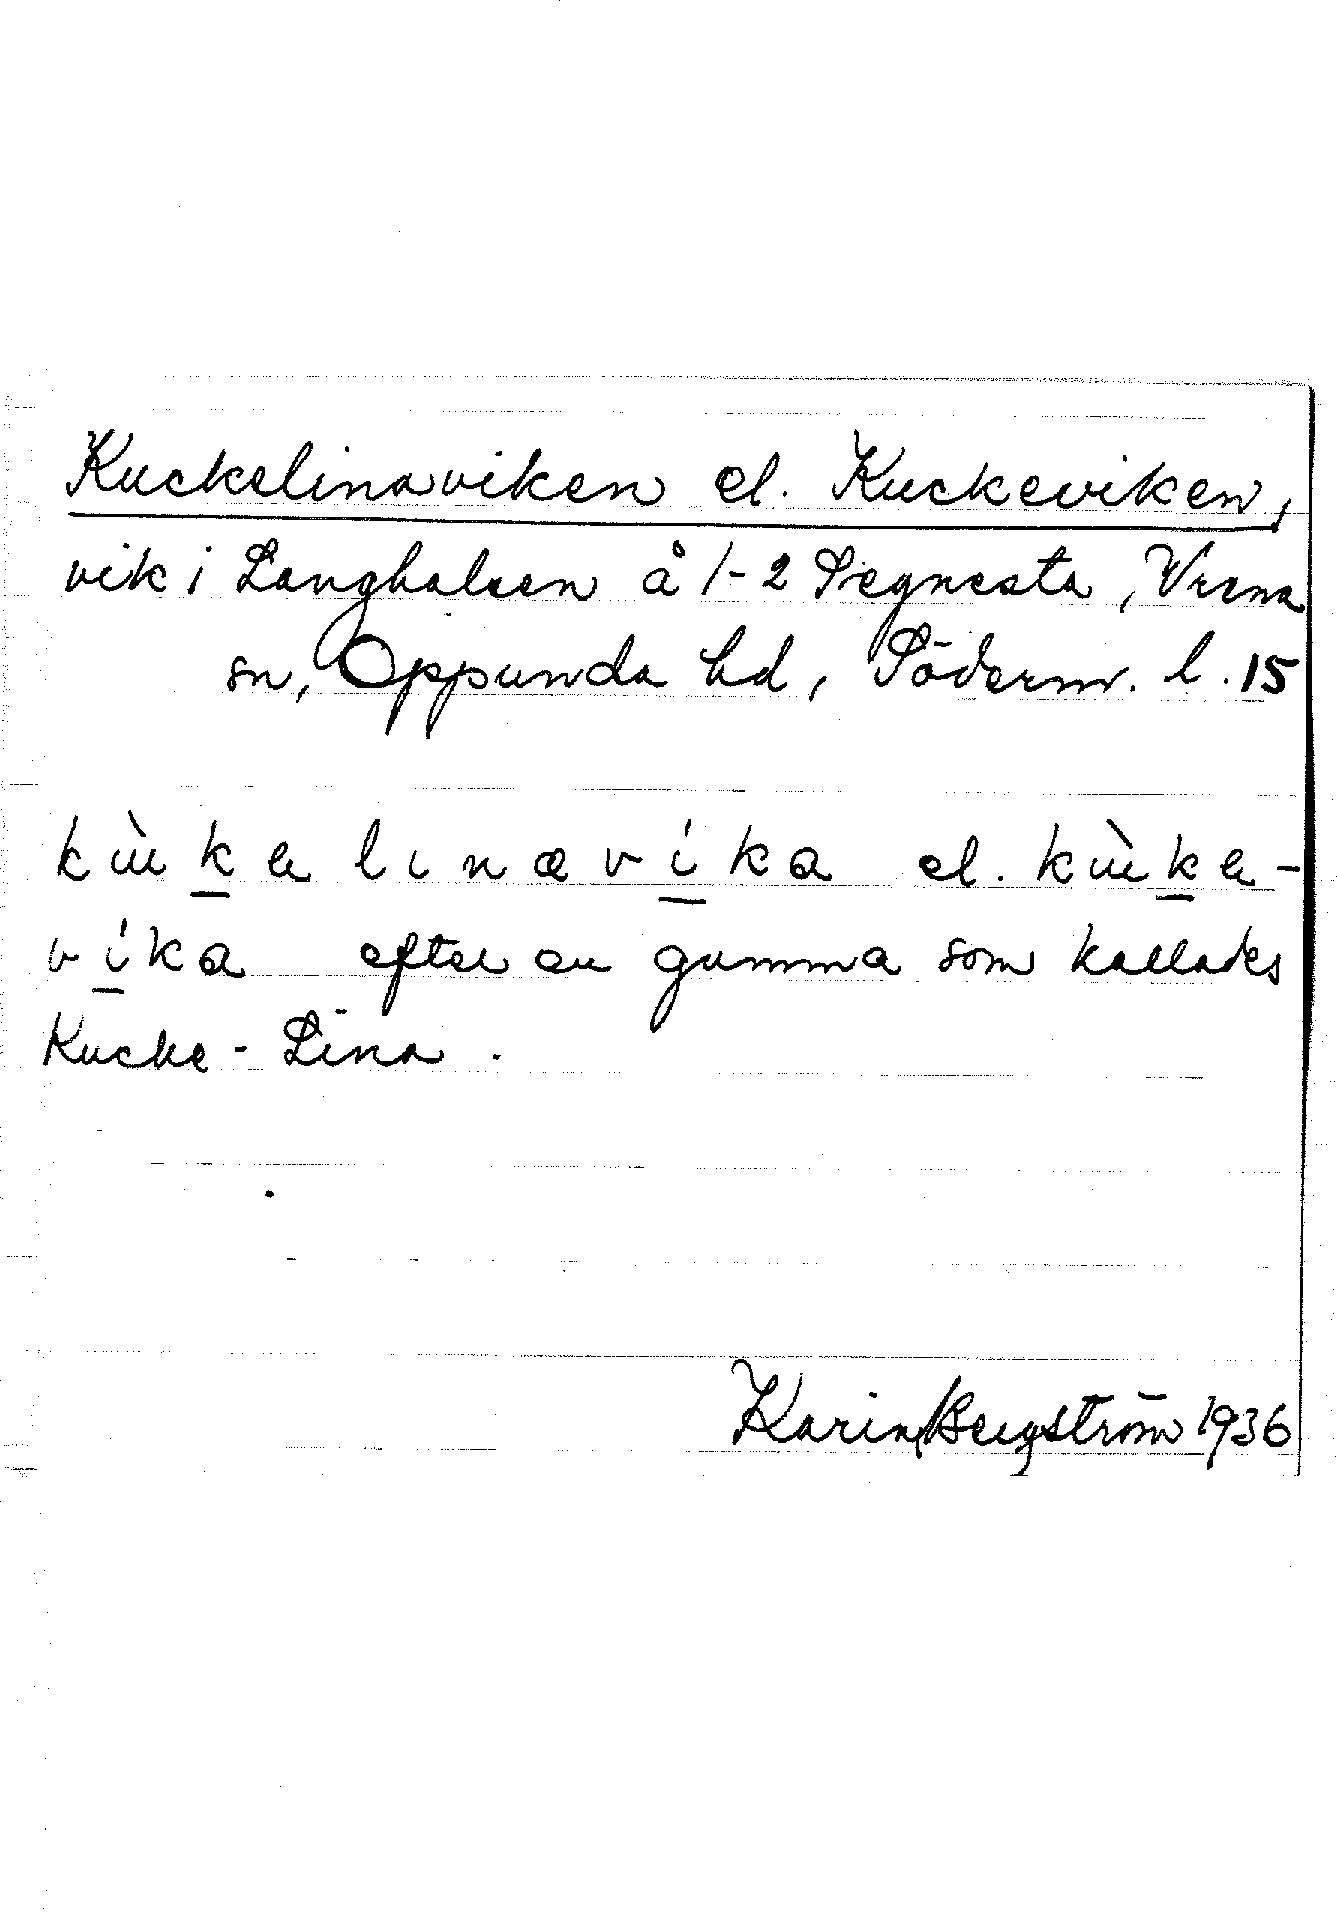 Kuckelinaviken el. Kuckeviken,
vik i Långhalsen å 1-2 Segnesta, Vrena
sn, Oppunda hd, Söderm. l. 15
kùkalinavíka el. kùka-
víka efter en gumma som kallades
Kucke-Lina.
Karin Bergström 1936